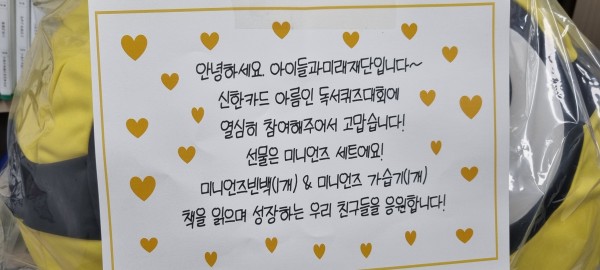 안녕하세요. 아이들과미래재단입니다~
신한카드 아름인 독서퀴즈대회에
열심히 참여해주어서 고맙습니다!
선물은 미니언즈 세트에요!
미니언즈빈백(1개) & 미니언즈 가습기(1개)
책을 읽으며 성장하는 우리 친구들을 응원합니다!